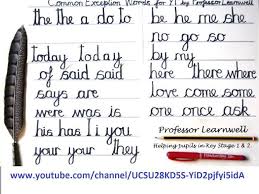 Common Exception Words for Y1 by Professor Learnwell
the the a do to
today today
of said said
says are
were was is
his has I you
your your they
be he me she
no go so
by my
here there where
love come some
one once ask
Professor Learnwell
Helping pupils in Key Stage 1 & 2
www.youtube.com/channel/UCSU28KD5S-YiD2pjfyi5idA